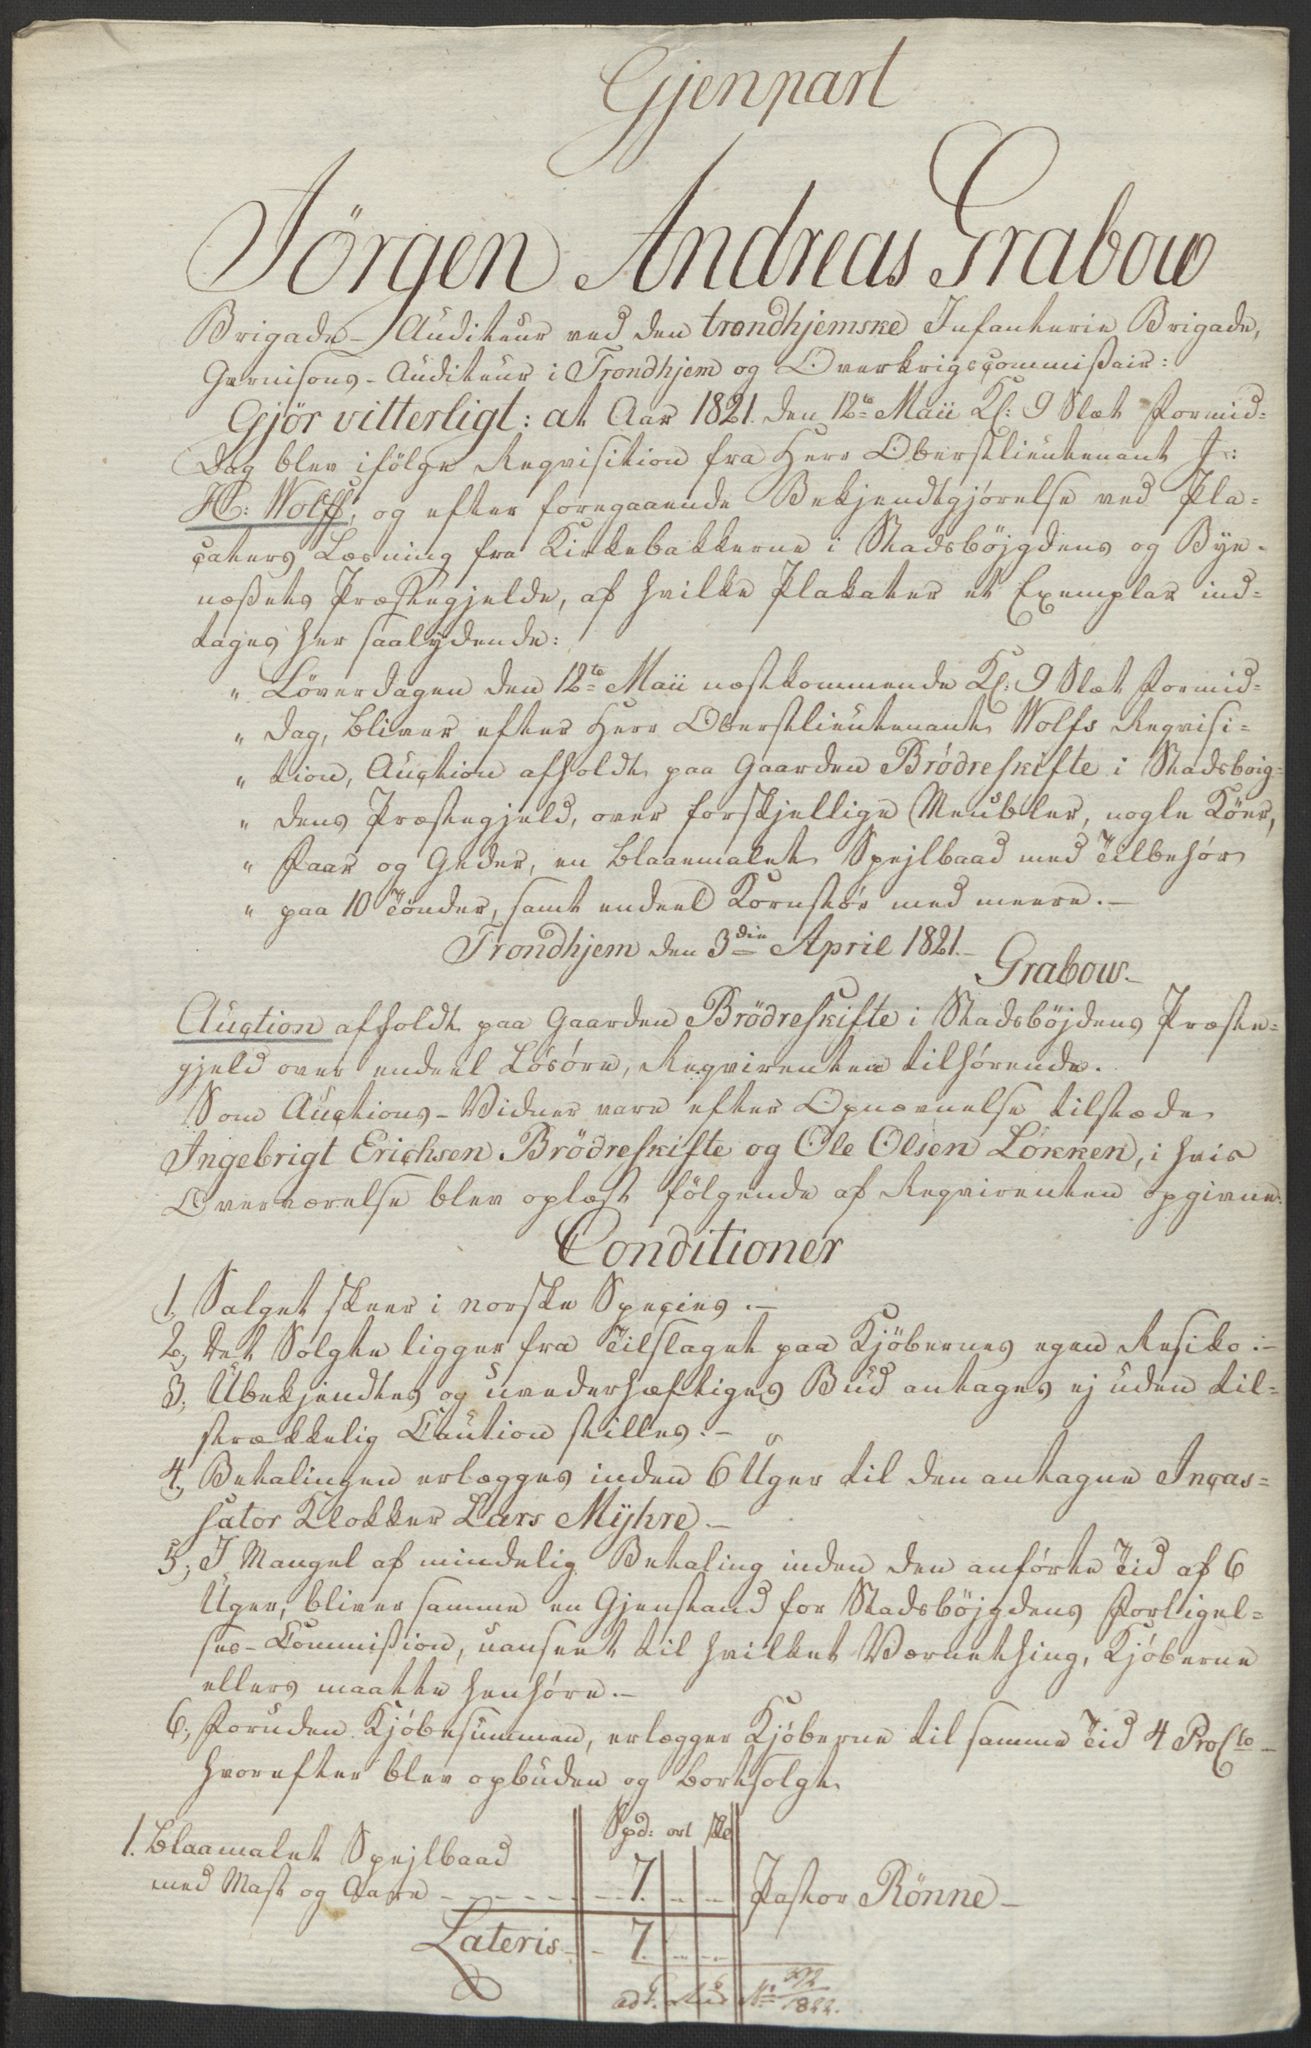 Gjenpart
Jörgen Andreas Grabow
Brigade-Auditeur ved den trondhjemske Infanterie Brigade,
Garnisons-Auditeur i Trondhjem og Overkrigscommissair:
Gjör vitterligt: at Aar 1821. den 12te Maii Kl: 9 Slæt Formid-
dag blev ifölge Reqvisition fra Herr Oberstlieutenant J:
H: Wolff, og efter foregaaende Bekjendtgjørelse ved Pla-
caters Læsning fra Kirkebakkerne i Stadsböjgdens og Bye-
næssets Præstegjelde, af hvilke Plakater et Exemplar ind-
tages her saalydende:
" Löverdagen den 12te Maii næstkommende Kl: 9 Slæt Formid-
" dag, bliver efter Herr Oberstlieutenant Wolfs Reqvisi-
" tion, Auction afholdt paa Gaarden Brödreskifte i Stadsboig-
" dens Præstegjeld, over forskjellige Meubler, nogle Köer,
" Faar og Geder, en blaaemalet Spejlbaad med Tilbehör
" paa 10 Tönder, samt endeel Kornstör med meere.—
Trondhjem den 3die April 1821.—
Grabow—
Auction afholdt paa Gaarden Brödreskifte i Stadsböjdens Præste-
gjeld over endeel Lösöre, Reqvirenten tilhörende.
Som Auctions-Vidner vare efter Opnævnelse tilstæde
Ingebrigt Erichsen Brödreskifte og Ole Olsen Løkken, i hvis
Overværelse blev oplæst fölgende af Reqvirenten opgivne
Conditioner
1, Salget skeer i norske Species.—
2, Det Solgte ligger fra Tilslaget paa Kjöbernes egen Resiko.—
3, Ubekjendtes og uvederhæftiges Bud antages ej uden til-
strækkelig Caution stilles.—
4, Betalingen erlægges inden 6 Uger til den antagne Incas-
sator Klokker Lars Myhre—
5, I Mangel af mindelig Betaling inden den anførte Tid af 6
Uger, bliver samme en Gjenstand for Stadsböjgdens Forligel-
ses-Commission, uanseet til hvilket Værnething, Kjöberne
ellers maatte henhöre.—
6, Foruden Kjöbesummen, erlægger Kjöberne til samme Tid 4 ProCto—
hvorefter blev opbuden og bortsolgt
Spd: ort sk
1. blaamalet Spejlbaad
med Mast og Aare - - - - 7. .. .. Pastor Rönne—
Lateris - 7. .. ..
No 1822.